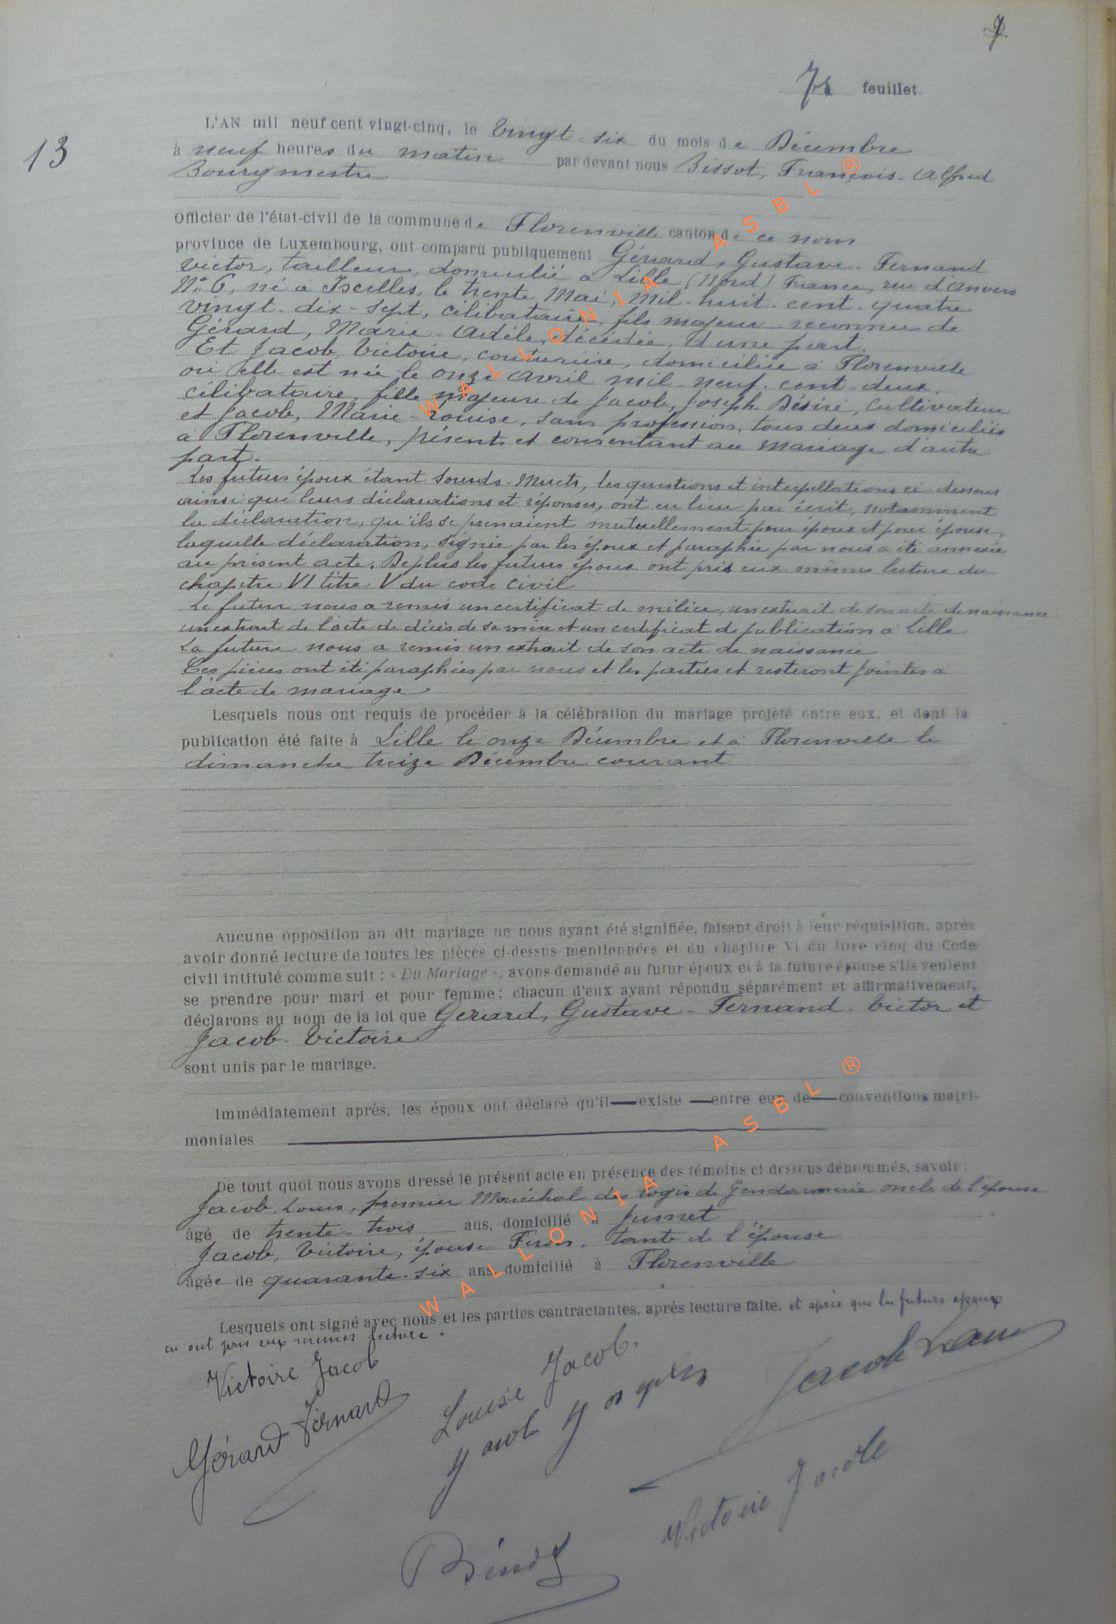 7
7e feuillet.
13
L'AN mil neuf cent vingt-cinq, le Vingt-six du mois de Décembre
à neuf heures du matin par devant nous Bissot, François-Alfred
Bourgmestre
Officier de l'état-civil de la commune de Florenville canton de ce nom
province de Luxembourg, ont comparu publiquement Gérard, Gustave-Fernand
Victor, tailleur, domicilié à Lille (Nord) France, rue d'Anvers
N° 6, né à Ixelles, le trente Mai, mil-huit-cent-quatre
vingt-dix-sept, célibataire, fils majeur reconnu de
Gérard, Marie-Adèle, décédée, d'une part.
Et Jacob, Victoire, couturière, domiciliée à Florenville
où elle est née le onze Avril mil-neuf-cent-deux,
célibataire, fille majeure de Jacob, Joseph Désiré, Cultivateur
et Jacob, Marie-Louise, sans profession, tous deux domiciliés
à Florenville, présents et consentant au mariage d'autre
part.
Les futurs époux étant Sourds-Muets, les questions et interpellations ci-dessous
ainsi que leurs déclarations et réponses, ont eu lieu par écrit, notamment
la déclaration, qu'ils se prenaient mutuellement pour époux et pour épouse,
laquelle déclaration, signée par les époux et paraphée par nous a été annexée
au présent acte. De plus les futurs époux ont pris eux-mêmes lecture du
chapitre VI titre V du code Civil
Le futur nous a remis un certificat de milice, un extrait de son acte de naissance
un extrait de l'acte de décès de sa mère et un certificat de publication à Lille
La future nous a remis un extrait de son acte de naissance
Ces pièces ont été paraphées par nous et les parties et resteront jointes à
l'acte de mariage
Lesquels nous ont requis de procéder à la célébration du mariage projeté entre eux, et dont la
publication été faite à Lille le onze Décembre et à Florenville le
dimanche treize Décembre courant
Aucune opposition au dit mariage ne nous ayant été signifiée, faisant droit à leur réquisition, après
avoir donné lecture de toutes les pièces ci-dessus mentionnées et du chapitre VI du titre cinq du Code
civil intitulé comme suit : « Du Mariage », avons demandé au futur époux et à la future épouse s'ils veulent
se prendre pour mari et pour femme ; chacun d'eux ayant répondu séparément et affirmativement,
déclarons au nom de la loi que Gérard, Gustave-Fernand-Victor et
Jacob-Victoire
sont unis par le mariage.
Immédiatement après, les époux ont déclaré qu'il existe entre eux de conventions matri-
moniales
De tout quoi nous avons dressé le présent acte en présence des témoins ci-dessous dénommés, savoir :
Jacob Louis, premier Maréchal des logis de Gendarmerie oncle de l'épouse
âgé de trente-trois ans, domicilié à Jumet
Jacob, Victoire, épouse tante de l'épouse
âgée de quarante-six ans domicilié à Florenville
Lesquels ont signé avec nous et les parties contractantes, après lecture faite, et après que les futurs époux
en ont pris eux mêmes lecture.
Victoire Jacob
Louise Jacob.
Jacob Louis
Gérard Fernand
Jacob Joseph
Victoire Jacob
WALLONIA ASBL ®
WALLONIA ASBL ®